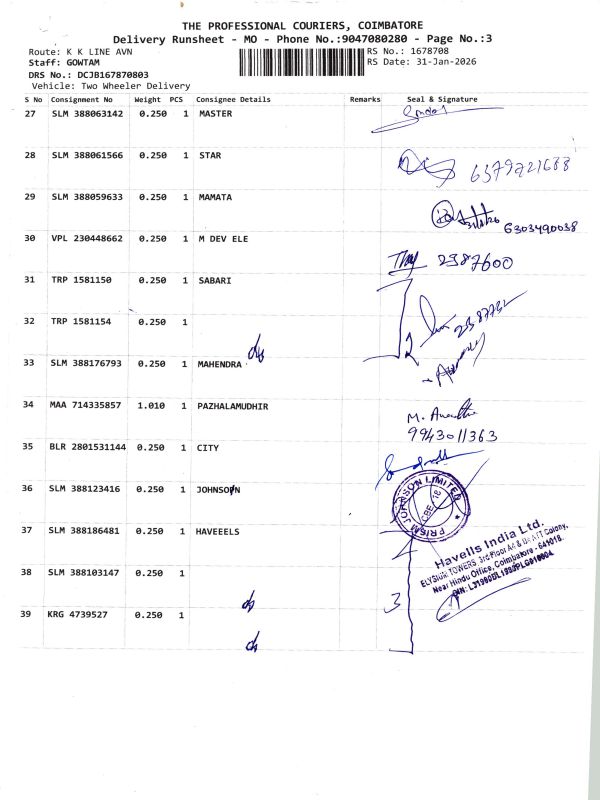 THE PROFESSIONAL COURIERS, COIMBATORE
Delivery Runsheet - MO - Phone No.:9047080280 - Page No.:3
Route: K K LINE AVN
RS No.: 1678708
Staff: GOWTAM
RS Date: 31-Jan-2026
DRS No.: DCJB167870803
Vehicle: Two Wheeler Delivery
S No Consignment No Weight PCS Consignee Details Remarks Seal & Signature
27 SLM 388063142 0.250 1 MASTER
28 SLM 388061566 0.250 1 STAR
6379721688
29 SLM 388059633 0.250 1 MAMATA
6303490038
30 VPL 230448662 0.250 1 M DEV ELE
2387600
31 TRP 1581150 0.250 1 SABARI
32 TRP 1581154 0.250 1
2
33 SLM 388176793 0.250 1 MAHENDRA
34 MAA 714335857 1.010 1 PAZHALAMUDHIR
M.
9943011363
35 BLR 2801531144 0.250 1 CITY
36 SLM 388123416 0.250 1 JOHNSON
PRISM JOHNSON LIMITED
CBE-18
37 SLM 388186481 0.250 1 HAVEEELS
Havells India Ltd.
ELYSIUM TOWERS, 3rd Floor Colony,
Near Hindu Office, Coimbatore - 641018.
38 SLM 388103147 0.250 1
3
39 KRG 4739527 0.250 1